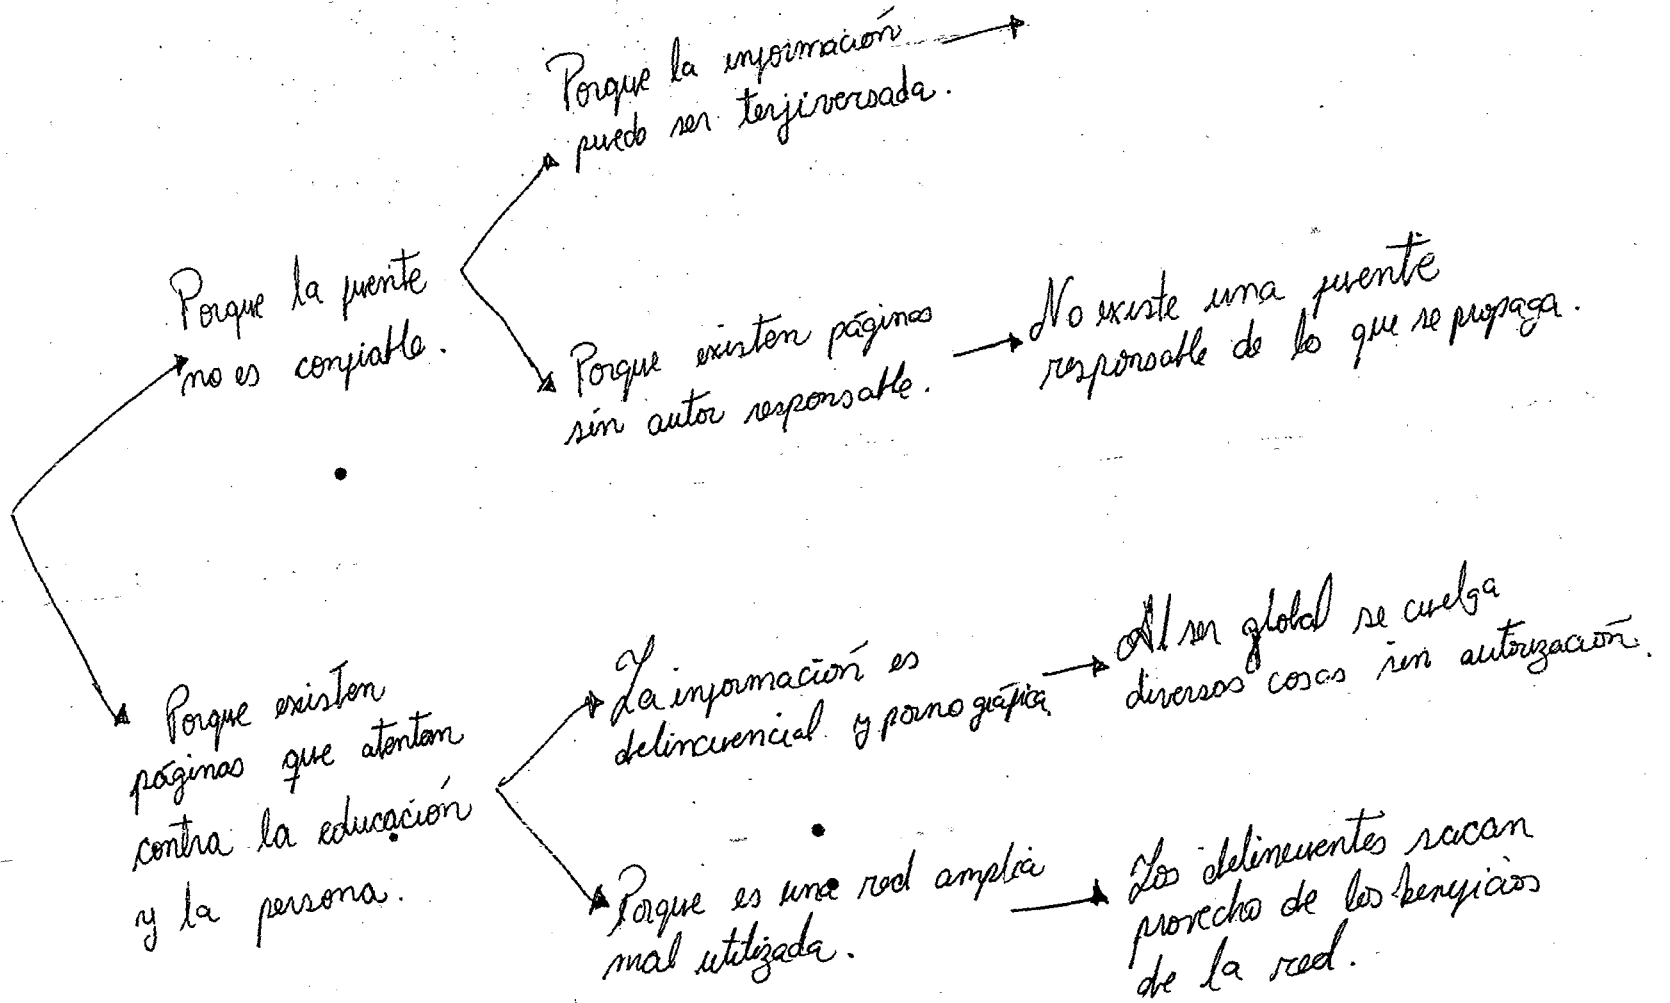 Porque la información
puede ser terjiversada.
Porque la fuente
no es confiable.
Porque existen páginas
sin autor responsable.
No existe una fuente
responsable de lo que se propaga.
Porque existen
páginas que atentan
contra la educación
y la persona.
La información es
delincuencial y pornográfica.
Al ser global se cuelga
diversas cosas sin autorización.
Porque es una red amplia
mal utilizada.
Los delincuentes sacan
provecho de los beneficios
de la red.